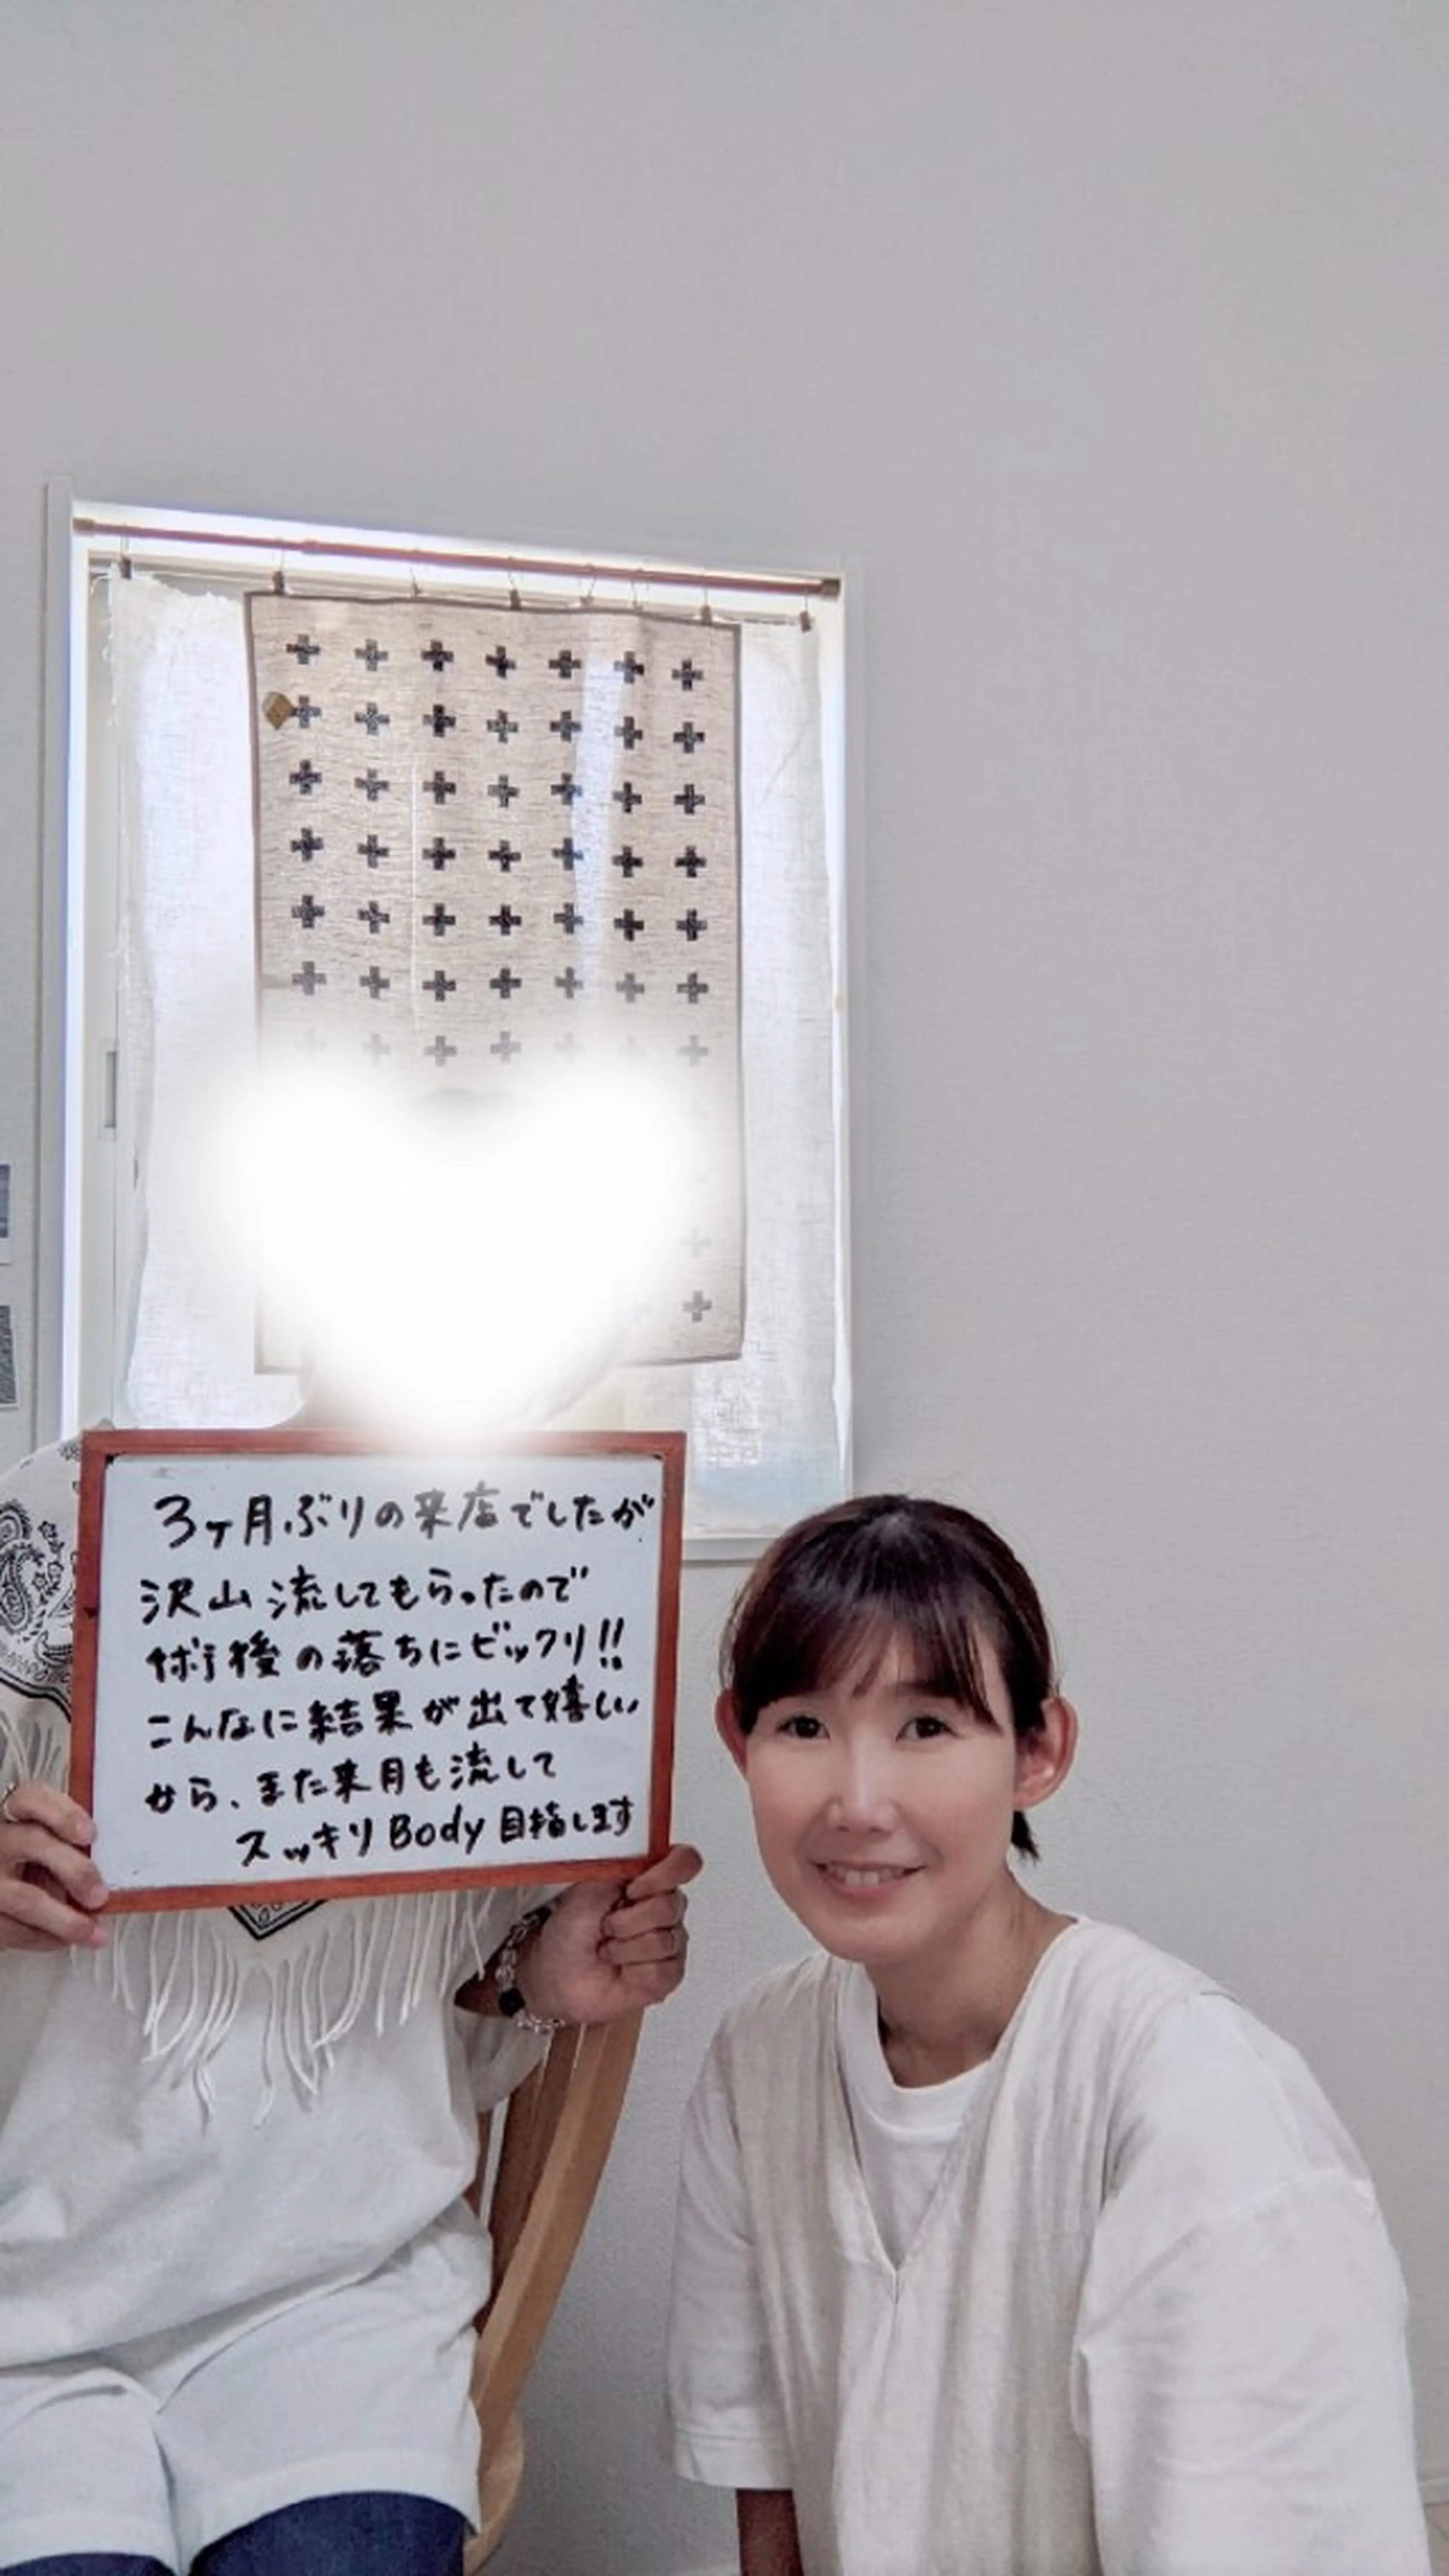 3ヶ月ぶりの来店でしたが
沢山流してもらったので
術後の落ちにビックリ!!
こんなに結果が出て嬉しい
から、また来月も流して
スッキリBody目指します